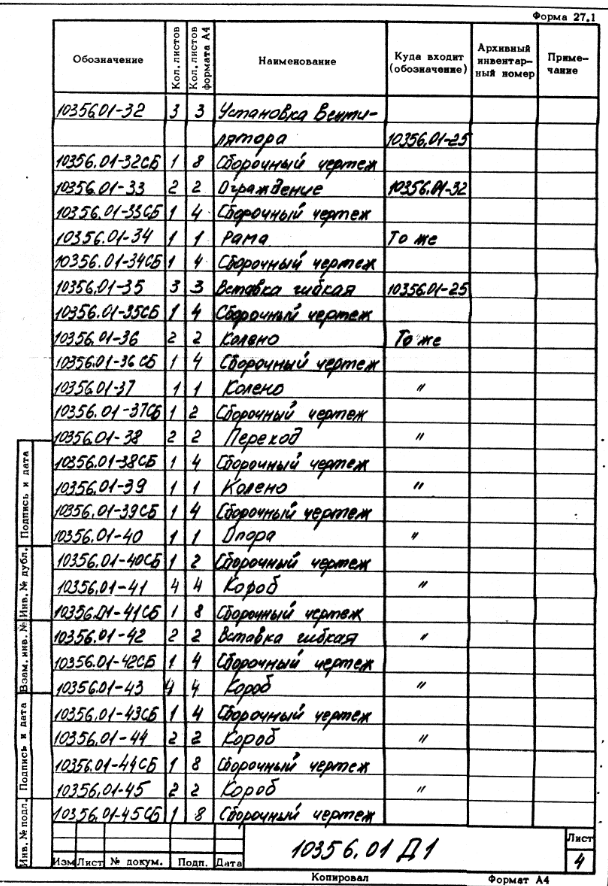 Форма 27.1
Обозначение Кол. листов Кол. листов формата А4 Наименование Куда входит (обозначение) Архивный инвентарный номер Примечание
10356.01-32 3 3 Установка венти-
лятора 10356.01-25
10356.01-32СБ 1 8 Сборочный чертеж
10356.01-33 2 2 Ограждение 10356.01-32
10356.01-33СБ 1 4 Сборочный чертеж
10356.01-34 1 1 Рама То же
10356.01-34СБ 1 4 Сборочный чертеж
10356.01-35 3 3 Вставка гибкая 10356.01-25
10356.01-35СБ 1 4 Сборочный чертеж
10356.01-36 2 2 Колено То же
10356.01-36СБ 1 4 Сборочный чертеж
10356.01-37 1 1 Колено "
10356.01-37СБ 1 2 Сборочный чертеж
10356.01-38 2 2 Переход "
10356.01-38СБ 1 4 Сборочный чертеж
10356.01-39 1 1 Колено "
10356.01-39СБ 1 4 Сборочный чертеж
10356.01-40 1 1 Опора "
10356.01-40СБ 1 2 Сборочный чертеж
10356.01-41 4 4 Короб "
10356.01-41СБ 1 8 Сборочный чертеж
10356.01-42 2 2 Вставка гибкая "
10356.01-42СБ 1 4 Сборочный чертеж
10356.01-43 4 4 Короб
10356.01-43СБ 1 4 Сборочный чертеж
10356.01-44 2 2 Короб "
10356.01-44СБ 1 8 Сборочный чертеж
10356.01-45 2 2 Короб "
10356.01-45СБ 1 8 Сборочный чертеж
Инв. № подл. Подпись и дата Взам. инв. № Инв. № дубл. Подпись и дата
Изм Лист № докум. Подп. Дата
10356.01 Д1
Лист
4
Копировал Формат А4